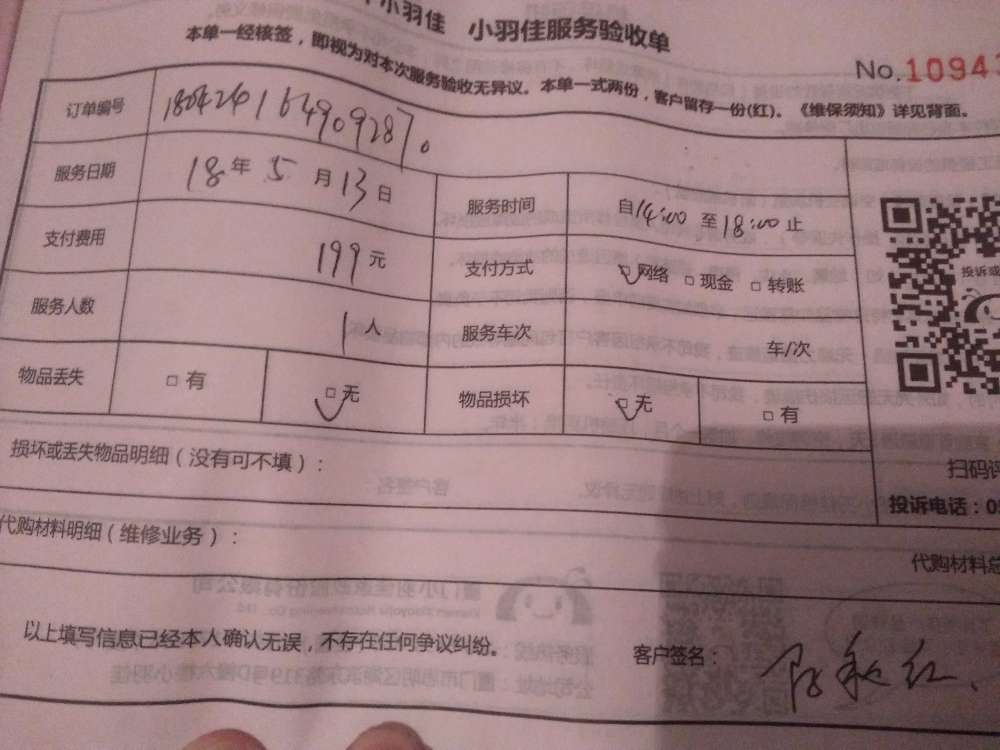 小羽佳 小羽佳服务验收单
本单一经核签，即视为对本次服务验收无异议。本单一式两份，客户留存一份(红)。《维保须知》详见背面。
No.1094
订单编号 180426164909287。
服务日期 18年5月13日 服务时间 自14:00至18:00止
支付费用 199元 支付方式 □网络 □现金 □转账
服务人数 1人 服务车次 车/次
物品丢失 □有 □无 物品损坏 □无 □有
投诉或
损坏或丢失物品明细（没有可不填）：
扫码评
投诉电话：0
代购材料明细（维修业务）：
代购材料总
以上填写信息已经本人确认无误，不存在任何争议纠纷。
客户签名：